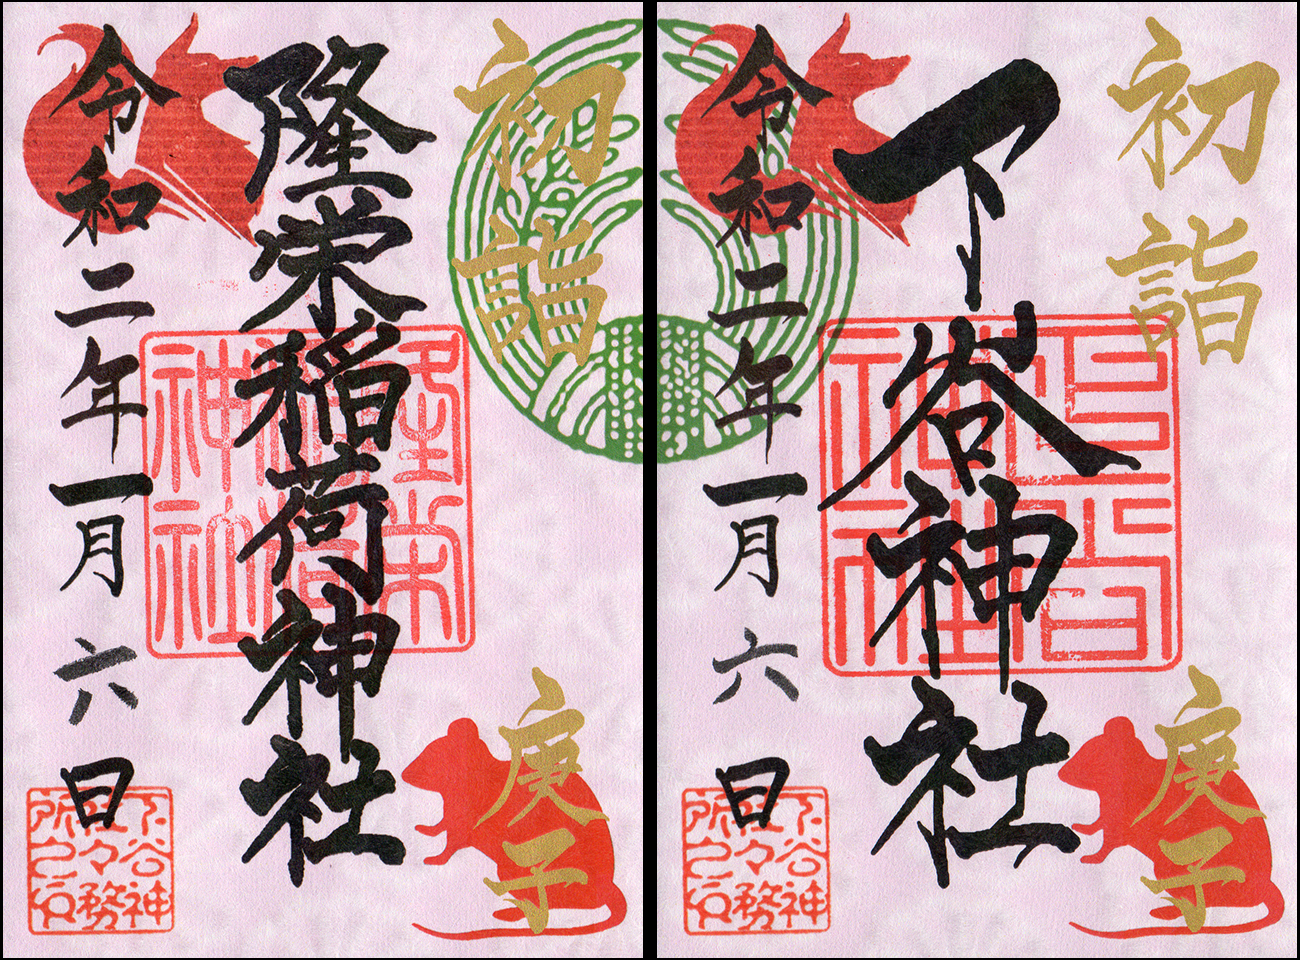 初詣
庚子
隆栄稲荷神社
令和二年一月六日
隆栄稲荷神社
下谷神社々務所之印
初詣
庚子
下谷神社
令和二年一月六日
下谷神社
下谷神社々務所之印